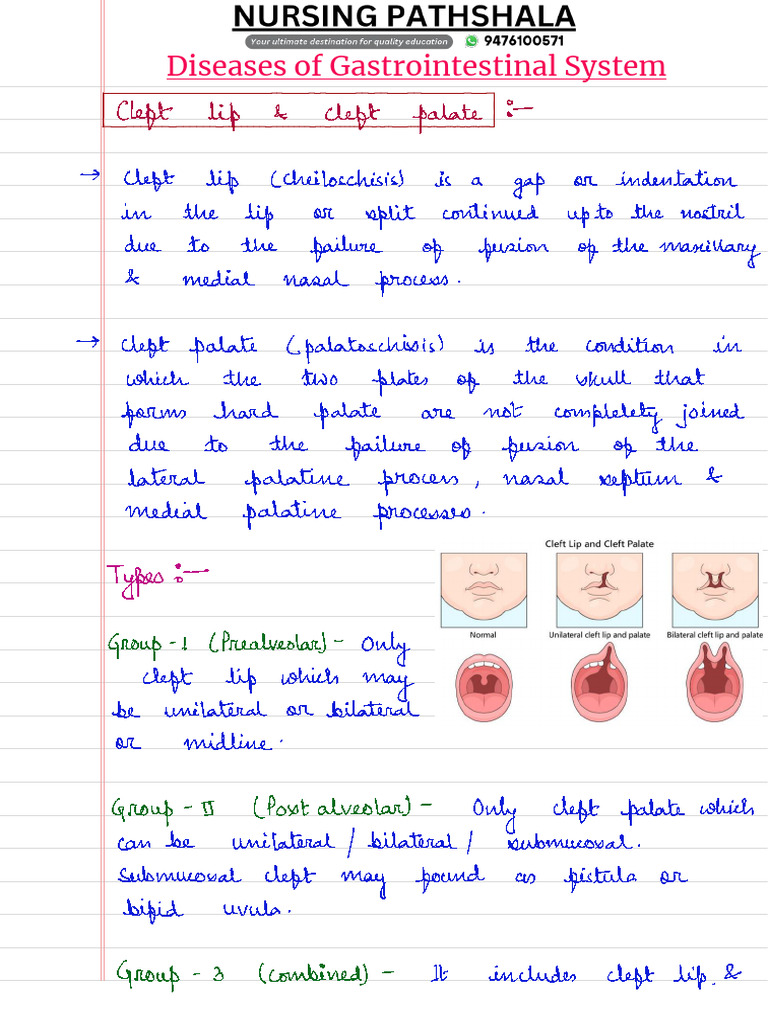 NURSING PATHSHALA
Your ultimate destination for quality education 9476100571
Diseases of Gastrointestinal System
Cleft lip & cleft palate :-
→ Cleft lip (cheiloschisis) is a gap or indentation
in the lip or split continued up to the nostril
due to the failure of fusion of the maxillary
& medial nasal process.
→ Cleft palate (palatoschisis) is the condition in
which the two plates of the skull that
forms hard palate are not completely joined
due to the failure of fusion of the
lateral palatine process, nasal septum &
medial palatine processes.
Types :-
Cleft Lip and Cleft Palate
Normal Unilateral cleft lip and palate Bilateral cleft lip and palate
Group-1 (Prealveolar) - Only
cleft lip which may
be unilateral or bilateral
or midline.
Group - II (Post alveolar) - Only cleft palate which
can be unilateral / bilateral / submucosal.
Submucosal cleft may found as fistula or
bifid uvula.
Group - 3 (combined) - It includes cleft lip &